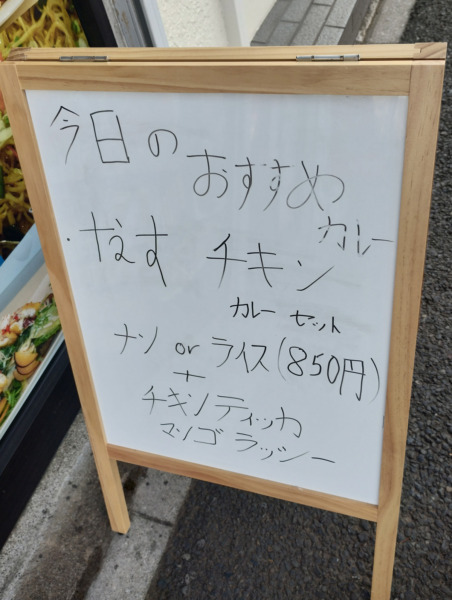 今日の
おすすめ
カレー
・なす チキン
カレー セット
ナン or ライス(850円)
+
チキンティッカ
マンゴ ラッシー